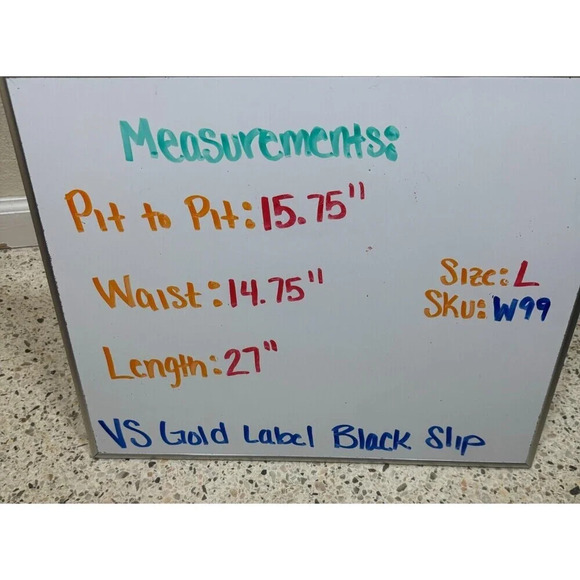 Measurements:
Pit to Pit: 15.75"
Waist: 14.75"
Size: L
SKU: W99
Length: 27"
VS Gold Label Black Slip